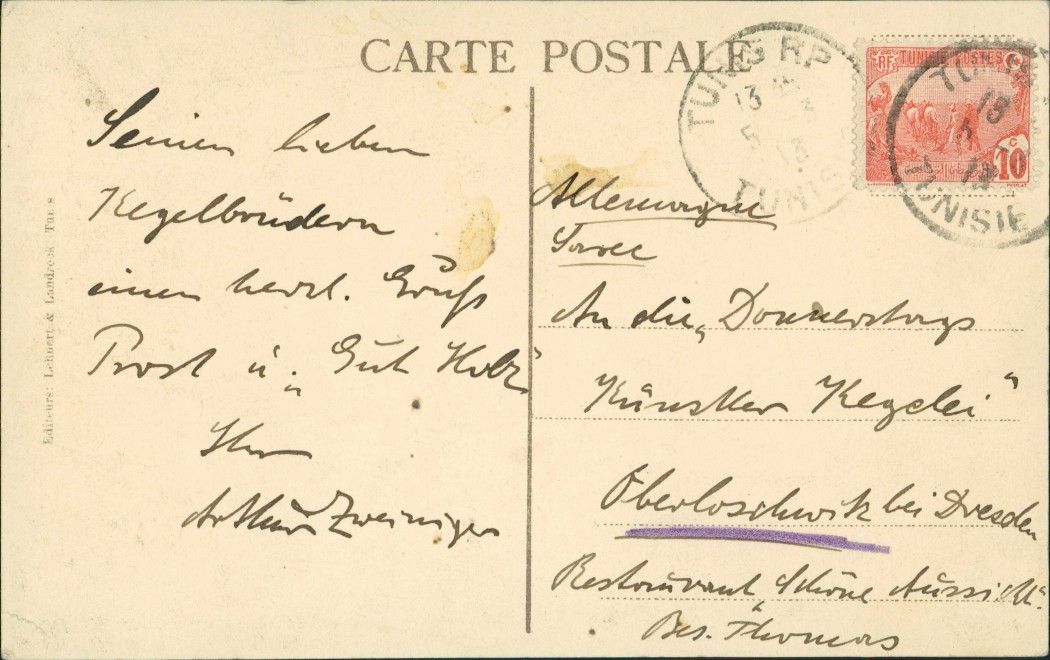 CARTE POSTALE
Seinen lieben
Kegelbrüdern
einen herzl. Gruß
Prost u. „Gut Holz“
Ihr
Arthur Zweiniger
Editeurs: Lehnert & Landrock Tunis
TUNIS RP
13
5 13
TUNISIE
RF TUNISIE POSTES
10 c
TUNIS
13
TUNISIE
Allemagne
Saxe
An die „Donnerstags
Künstler Kegelei“
Oberloschwitz bei Dresden
Restaurant „Schöne Aussicht“.
Bes. Thomas